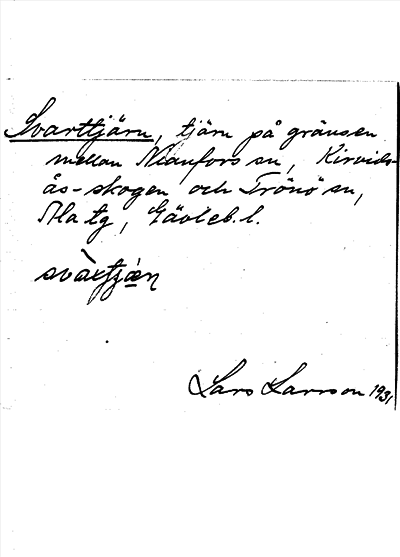 Svarttjärn, tjärn på gränsen
mellan Nianfors sn, Kirvids-
ås-skogen och Trönö sn,
Ala tg, Gävleb. l.
Lars Larsson 1931